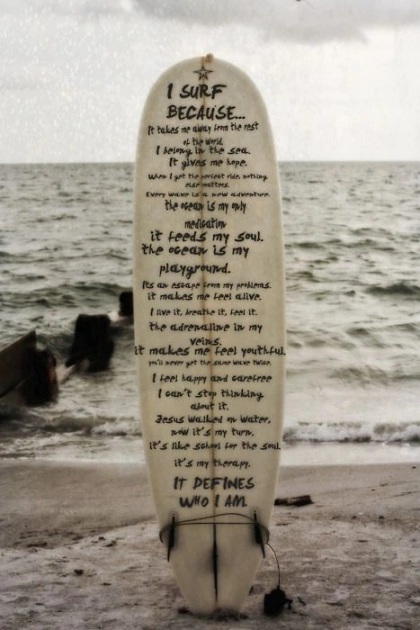 I SURF
BECAUSE...
It takes me away from the rest
of the world.
I belong in the sea.
It gives me hope.
When I get the perfect ride, nothing
else matters.
Every wave is a new adventure.
the ocean is my only
medication
it feeds my soul.
the ocean is my
playground.
Its an escape from my problems.
it makes me feel alive.
I live it, breathe it, feel it.
the adrenaline in my
veins.
it makes me feel youthful.
you'll never get the same wave twice.
I feel happy and carefree
I can't stop thinking
about it.
Jesus walked on water,
now it's my turn.
it's like school for the soul.
it's my therapy.
IT DEFINES
WHO I AM.